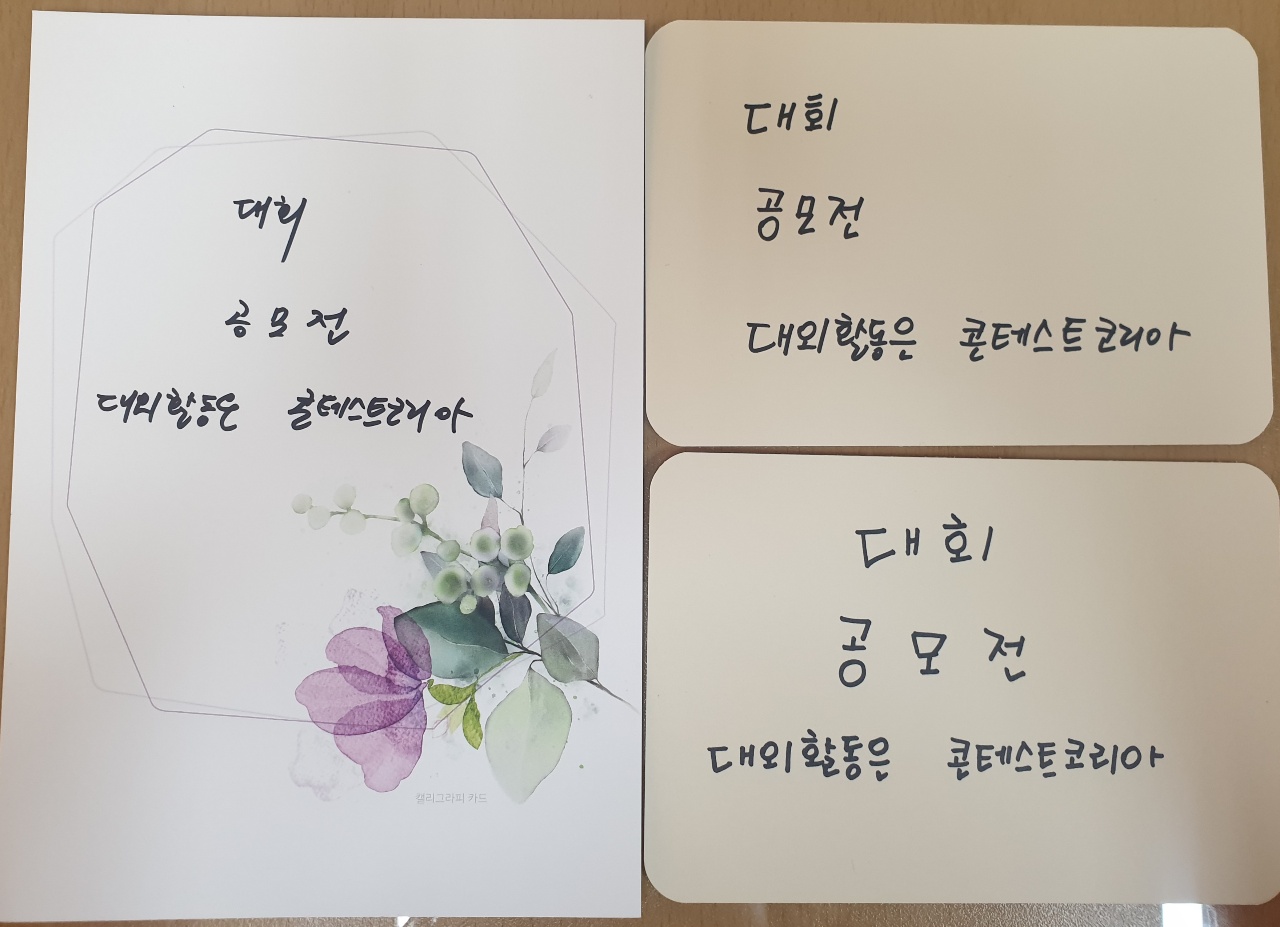 대회
공모전
대외활동은 콘테스트코리아
캘리그라피 카드
대회
공모전
대외활동은 콘테스트코리아
대회
공모전
대외활동은 콘테스트코리아